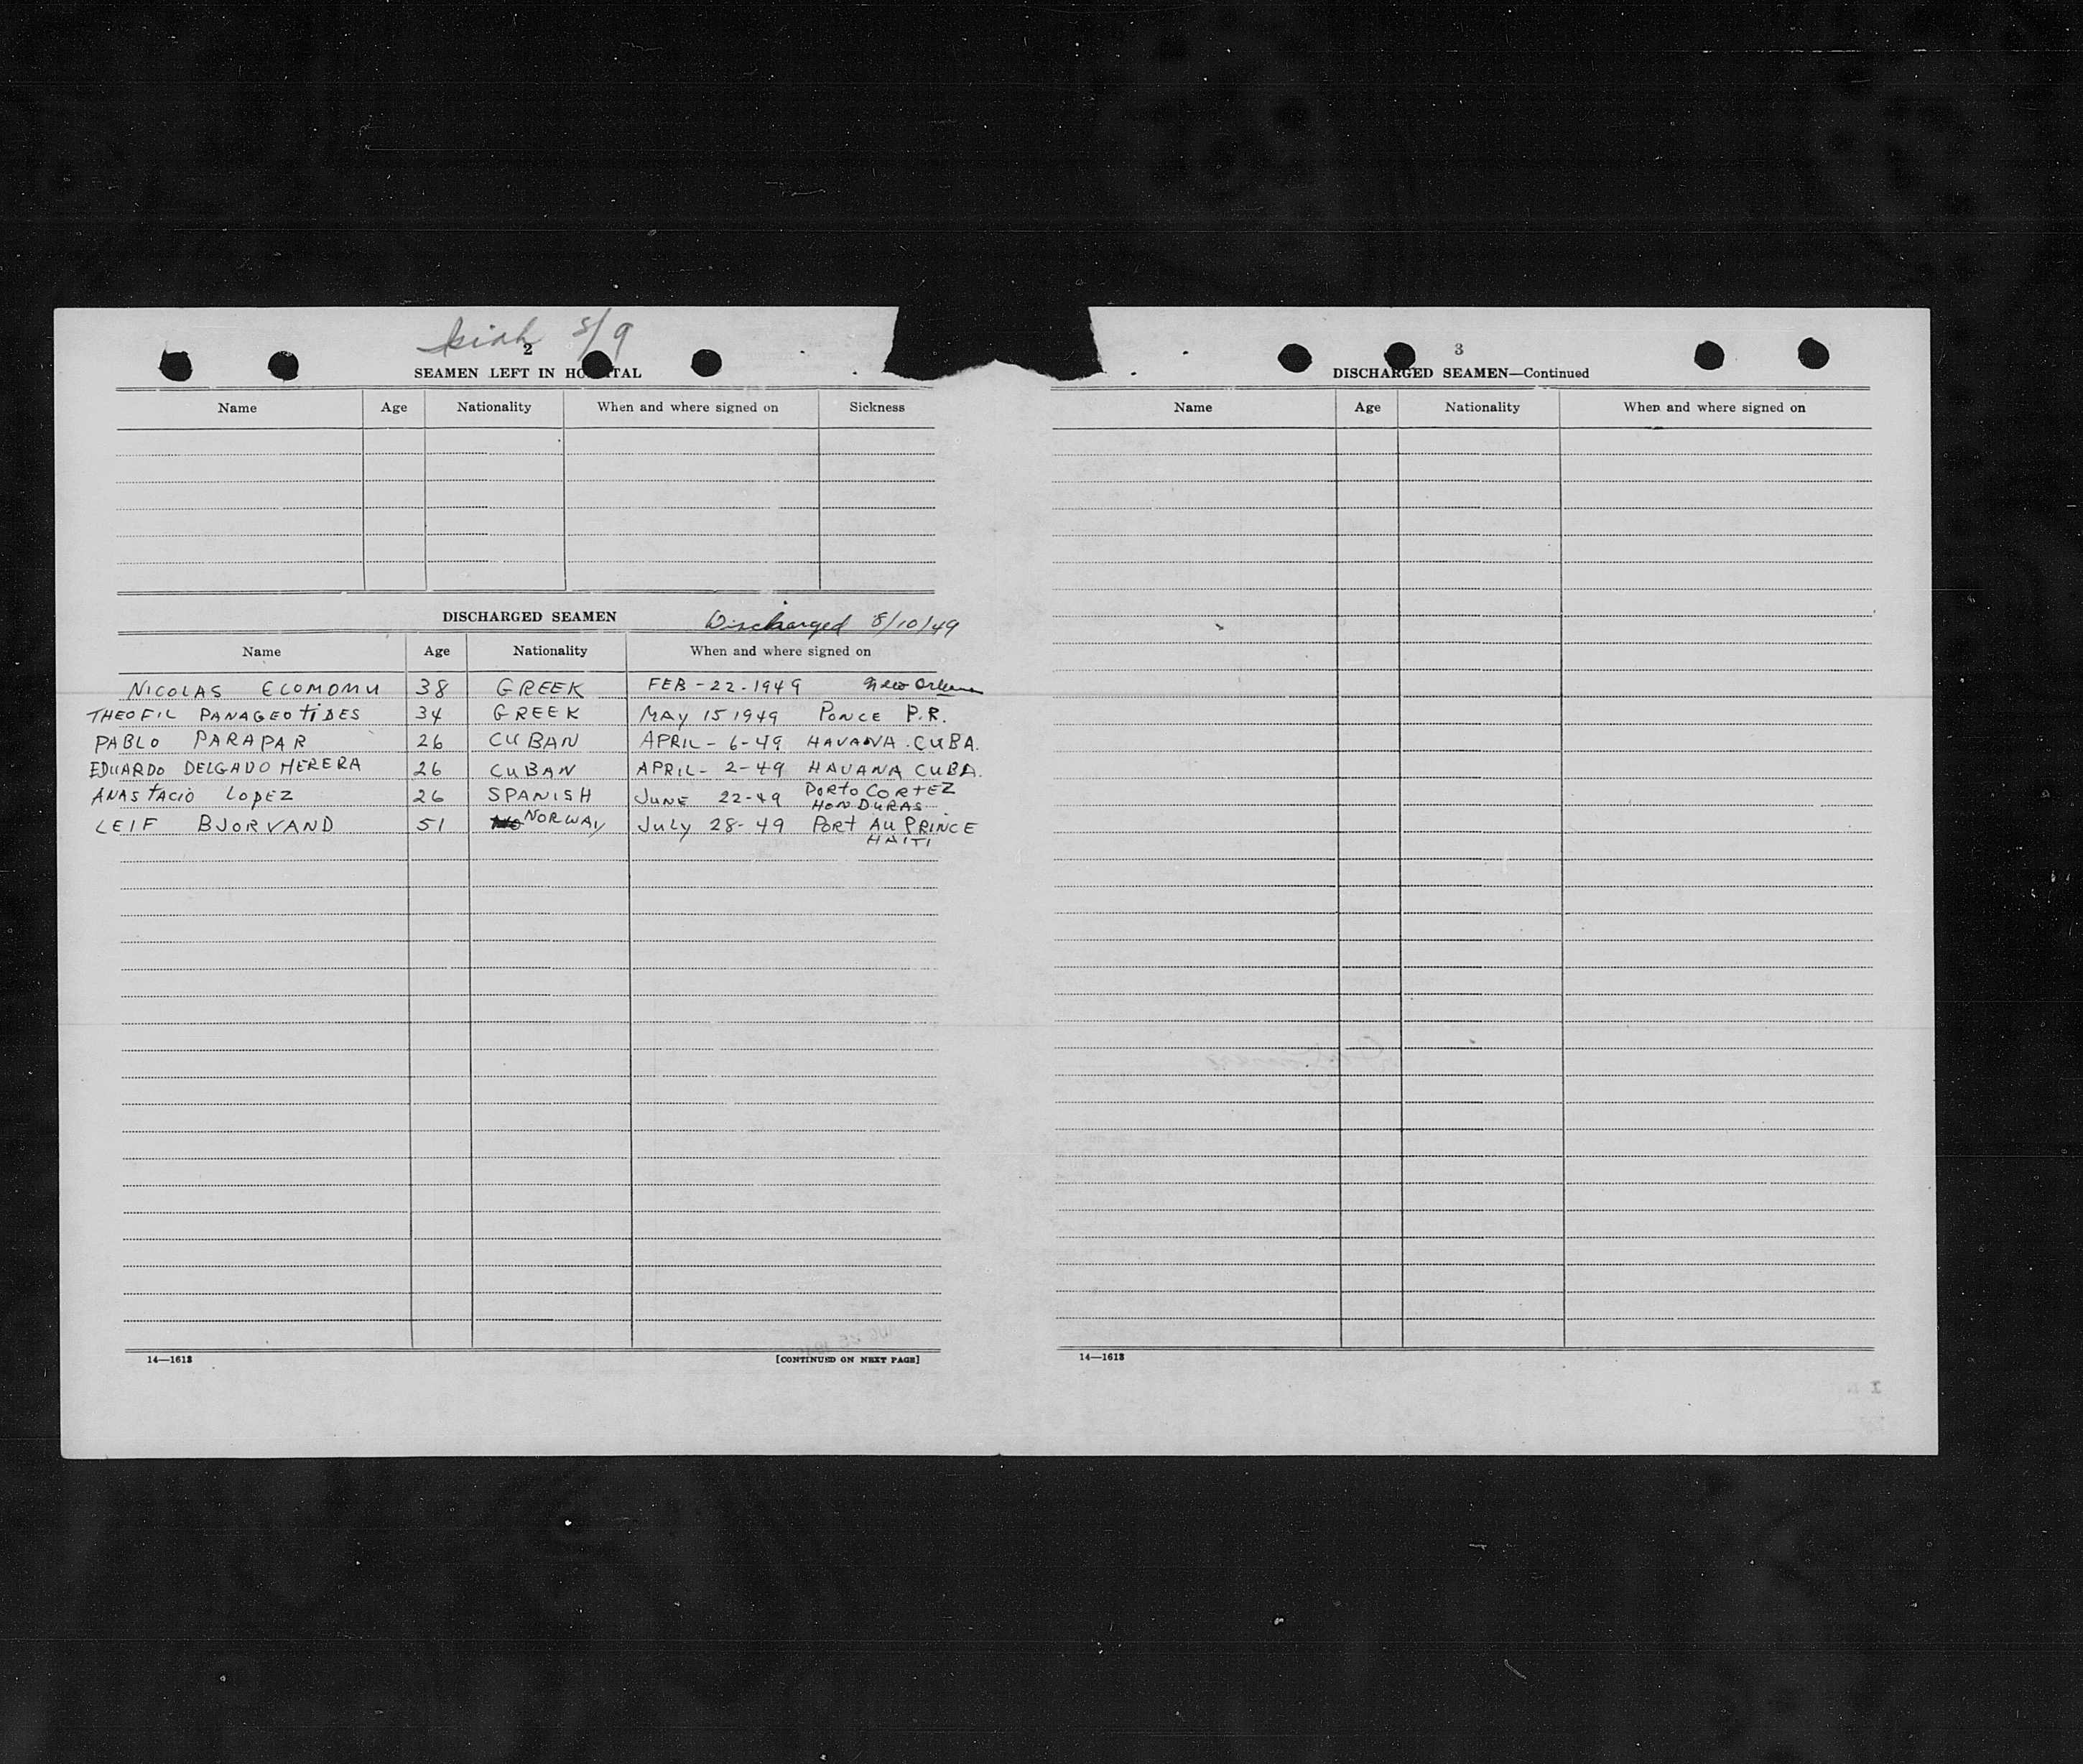 8/9
2
SEAMEN LEFT IN HOSPITAL
Name Age Nationality When and where signed on Sickness
DISCHARGED SEAMEN Discharged 8/10/49
Name Age Nationality When and where signed on
NICOLAS ECOMOMU 38 GREEK FEB-22-1949 New Orleans
THEOFIL PANAGEOTIDES 34 GREEK MAY 15 1949 PONCE P.R.
PABLO PARAPAR 26 CUBAN APRIL-6-49 HAVANA CUBA.
EDUARDO DELGADO HERERA 26 CUBAN APRIL-2-49 HAVANA CUBA.
ANASTACIO LOPEZ 26 SPANISH JUNE 22-49 PORTO CORTEZ
HONDURAS
LEIF BJORVAND 51 NORWAY JULY 28-49 PORT AU PRINCE
HAITI
14—1613 [CONTINUED ON NEXT PAGE]
3
DISCHARGED SEAMEN—Continued
Name Age Nationality When and where signed on
14—1613